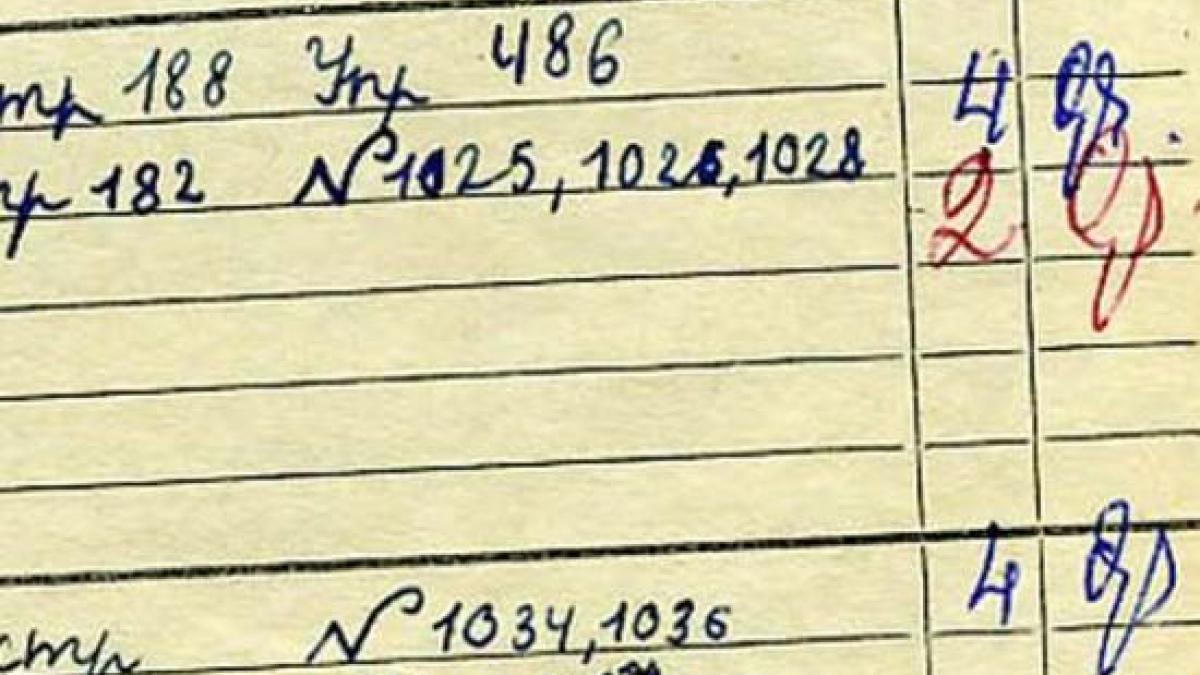 стр 188 Упр 486 4
стр 182 №1025, 1026, 1028 2
стр №1034, 1036 4